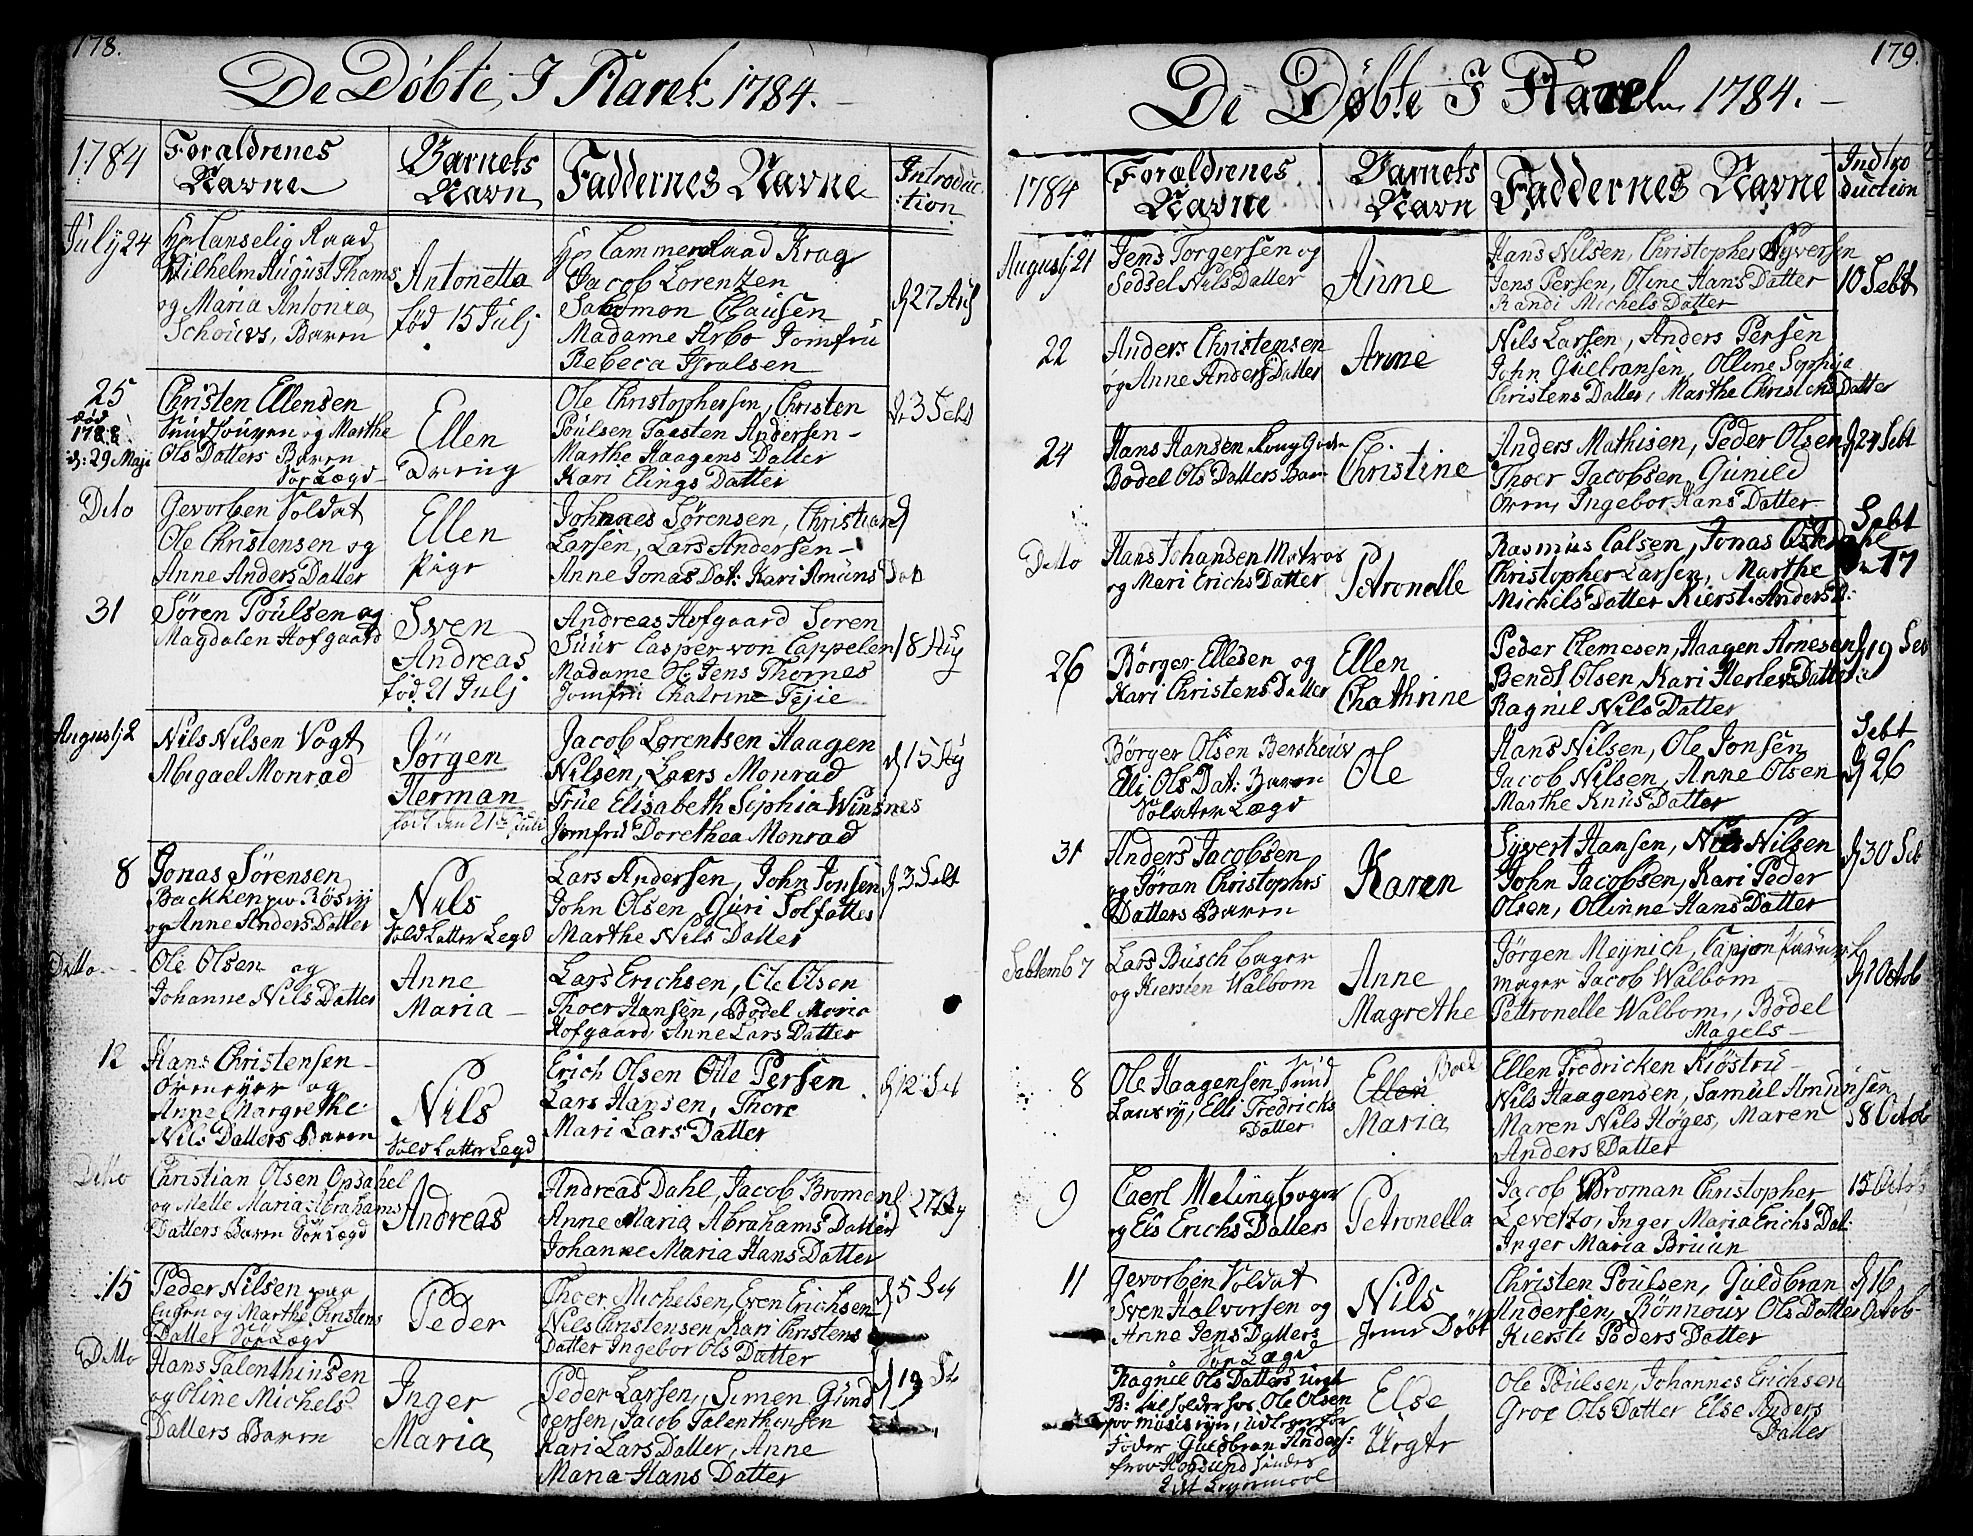 178.
De Döbte I Aaret 1784.
1784
Foraldrenes Navne
Barnets Navn
Faddernes Navne
Introduc:tion
July 24
Hr Canselig Raad
Wilhelm August Thams
og Maria Antonia
Schouvs, Baren
Antonetta
föd 15 Julj
Hr Cammerraad Krag
Jacob Lorentzen
Salomon Clausen
Madame Arbo Jomfru
Rebeca Isralsen
d 27 Aug
25
död
1788
d: 29 Maji
Christen Ellensen
og Marthe
Ols Datters Baren
Sör Lægd
Ellen
Dreng
Ole Christophersen, Christen
Poulsen Torsten Andersen
Marthe Haagens Datter
Kari Elings Datter
d: 3 Sebt
Ditto
Gevorben Soldat
Ole Christensen og
Anne Anders Datter
Ellen
Pige
Johnnes Sörensen, Christian
Larsen, Lars Andersen
Anne Jonas Dat: Kari Amuns Dat
31
Sören Poulsen og
Magdalen Hofgaard
Sven
Andreas
föd 21 Julj
Andreas Hofgaard Sören
Suur Casper von Cappelen
Madame H. Jens Thornes
Jomfru Chatrine Tejie
18 Aug
Augustj 2
Nils Nilsen Vogt
Abigael Monrad
Jörgen
Herman
födt den 21de Juli
Jacob Lorentsen Haagen
Nilsen, Laers Monrad
Frue Elisabeth Sophia Winsnes
Jomfru Dorethea Monrad
d 15 Aug
8
Jonas Sörensen
Backken paa Rösvij
og Anne Anders Datter
Nils
Sold Latter Legd
Lars Andersen, John Jonsen
John Olsen Guri Solfattes
Marthe Nils Datter
d 3 Sebt
Ditto
Ole Olsen og
Johanne Nils Datter
Anne
Maria
Lars Erichsen, Ole Olsen
Thoer Hansen, Bodel Maria
Hofgaard, Anne Lars Datter
12
Hans Christensen
Öreneyer og
Anne Margrethe
Nils Datters Baren
Nils
Sold Latter Legd
Erich Olsen Olle Persen
Lars Hansen, Thore
Mari Lars Datter
d 12 Seb
Ditto
Christian Olsen Opsahel
og Melle Maria Abrahams
Datters Baren Sör Lægd
Andreas
Andreas Dahl, Jacob Broman
Anne Maria Abrahams Datter
Johanne Maria Hans Datter
d 27 Aug
15
Peder Nilsen paa
og Marthe Christens
Datter Sör Lægd
Peder
Thoer Michelsen, Even Erichsen
Nils Christensen, Kari Christens
Datter Ingebor Ols Datter
d 5 Seb
Ditto
Hans Talenthinsen
og Oline Michels
Datters Baren
Inger
Maria
Peder Larsen, Simen Gund
dersen, Jacob Talenthensen
Kari Lars Datter, Anne
Maria Hans Datter
d 19 Sb
179.
De Döbte I Aaret 1784.
1784
Foraldrenes Navne
Barnets Navn
Faddernes Navne
Indtroduction
Augustj 21
Jens Torgersen og
Sedsel Nils Datter
Anne
Hans Nilsen, Christopher Syversen
Jens Persen, Oline Hans Datter
Randi Michels Datter
10 Sebt
22
Anders Christensen
og Anne Anders Datter
Anne
Nils Larsen, Anders Persen
John Gulbransen, Olline Sophie
Christens Datter, Marthe Christens Datter
24
Hans Hansen
Bodel Ols Datters Barn
Christine
Anders Mathisen, Peder Olsen
Thoer Jacobsen Gunild
Ören, Ingebor Hans Datter
d 24 Sebt
Ditto
Hans Johansen Matros
og Mari Erichs Datter
Petronelle
Rasmus Calsen, Jonas
Christopher Larsen, Marthe
Michels Datter Kiersti Anders D:
Sebt
17
26
Börger Ellesen og
Kari Christens Datter
Ellen
Chathrine
Peder Clemesen, Haagen Arnesen
Bendt Olsen, Kari Herlev Datter
Ragnil Nils Datter
d 19 Seb
Börger Olsen Berskouv
Elli Ols Dat: Baren
Solater Lægd
Ole
Hans Nilsen, Ole Jonsen
Jacob Nilsen, Anne Olsen
Marthe Knus Datter
Sebt
d 26
31
Anders Jacobsen
og Jöran Christophrs
Datters Baren
Karen
Syvert Hansen, Nils Nilsen
John Jacobsen, Kari Peder
Olsen, Ollinne Hans Datter
d 30 Seb
Sebtemb 7
Lars Busch bager
og Kiersten Walbom
Anne
Magrethe
Jörgen Meynich,
mager Jacob Walbom
Pettronelle Walbom, Bodel
Magels
d 1 Octob
8
Ole Haagensen Sund
Elli Fredrichs
Datter
Ellen Boel
Maria
Ellen Fredricken Kiöstru
Nils Haagensen, Samul Amunsen
Maren Nils Höges, Maren
Anders Datter
8 Octob
9
Caerl Meling bager
og Elis Erichs Datter
Petronella
Jacob Broman Christopher
Levetzo, Inger Maria Erichs Dat:
Inger Maria Bruun
15 Octob
11
Gevorben Soldat
Sven Halvorsen og
Anne Jens Datters
Sör Lægd
Nils
Jeme Döbt
Christen Poulsen, Guldbran
Andersen, Rönnouv Ols Datter
Kiersti Peders Datter
d 16
Octob
Ragnil Ols Datters
B: hos Ole Olsen
paa
Fader Guldbran Anders:
fraa Hogsund
Else
Uegte
Ole Poulsen, Johannes Erichsen
Groe Ols Datter Else Anders
Datter